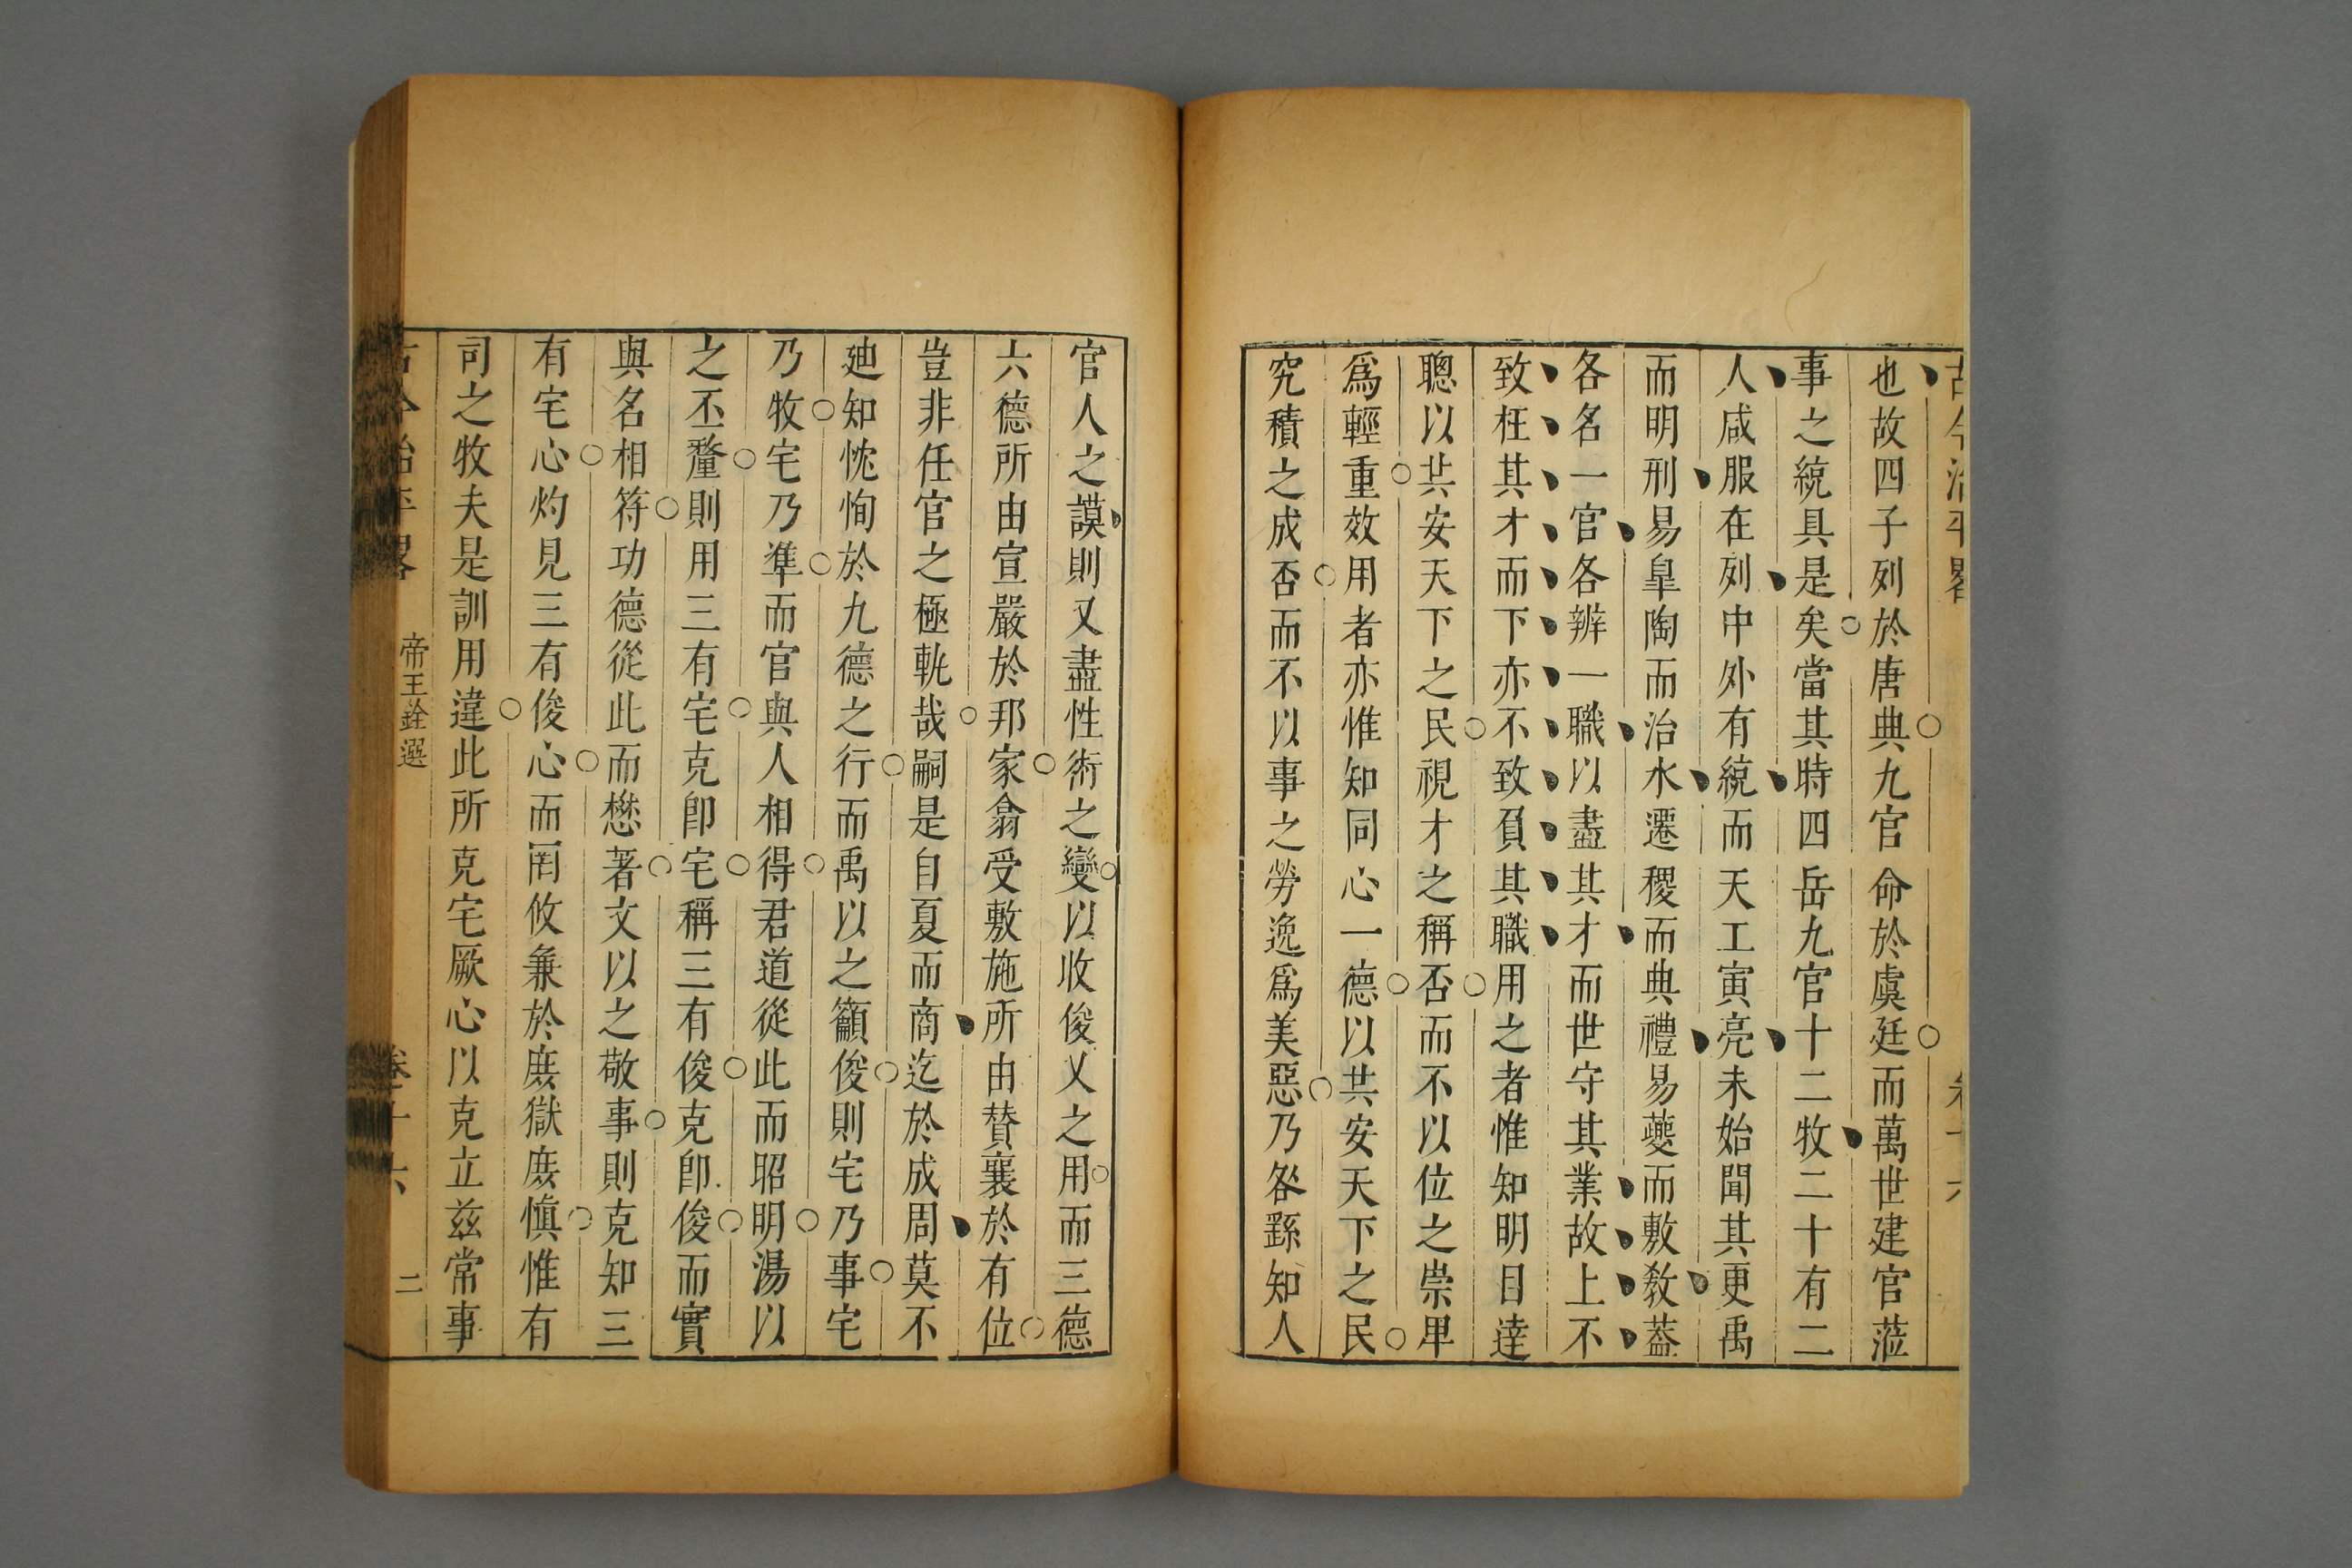 古今治平畧
卷十六
也故四子列於唐典九官命於虞廷而萬世建官蒞
事之統具是矣當其時四岳九官十二牧二十有二
人咸服在列中外有統而天工寅亮未始聞其更禹
而明刑易臯陶而治水遷稷而典禮易夔而敷敎葢
各名一官各辨一職以盡其才而世守其業故上不
致枉其才而下亦不致負其職用之者惟知明目達
聰以共安天下之民視才之稱否而不以位之崇卑
爲輕重效用者亦惟知同心一德以共安天下之民
究積之成否而不以事之勞逸爲美惡乃咎繇知人
官人之謨則又盡性術之變以收俊乂之用而三德
六德所由宣嚴於邦家翕受敷施所由賛襄於有位
豈非任官之極軌哉嗣是自夏而商迄於成周莫不
廸知忱恂於九德之行而禹以之籲俊則宅乃事宅
乃牧宅乃準而官與人相得君道從此而昭明湯以
之丕釐則用三有宅克卽宅稱三有俊克卽俊而實
與名相符功德從此而懋著文以之敬事則克知三
有宅心灼見三有俊心而罔攸兼於庶獄庶愼惟有
司之牧夫是訓用違此所克宅厥心以克立兹常事
古今治平畧
帝王銓選
卷十六
二